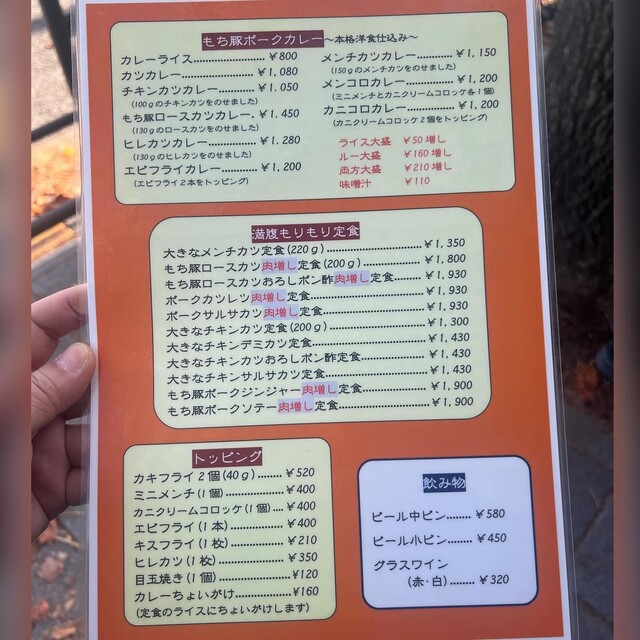 もち豚ポークカレー～本格洋食仕込み～
カレーライス…………………… ￥800
カツカレー………………… ￥1,080
チキンカツカレー……… ￥1.050
(100gのチキンカツをのせました)
もち豚ロースカツカレー. ￥1.450
(130gのロースカツをのせました)
ヒレカツカレー…………… ￥1.280
(130gのヒレカツをのせました)
エビフライカレー………… ￥1,200
(エビフライ2本をトッピング)
メンチカツカレー………… ￥1,150
(150gのメンチカツをのせました)
メンコロカレー…………… ￥1,200
(ミニメンチとカニクリームコロッケ各1個)
カニコロカレー…………… ￥1,200
(カニクリームコロッケ2個をトッピング)
ライス大盛 ￥50増し
ルー大盛 ￥160増し
両方大盛 ￥210増し
味噌汁 ￥110
満腹もりもり定食
大きなメンチカツ定食(220g)………………………… ￥1,350
もち豚ロースカツ肉増し定食(200g)………………… ￥1,800
もち豚ロースカツおろしポン酢肉増し定食……… ￥1,930
ポークカツレツ肉増し定食…………………………… ￥1,930
ポークサルサカツ肉増し定食………………………… ￥1,930
大きなチキンカツ定食(200g)………………………… ￥1,300
大きなチキンデミカツ定食…………………………… ￥1,430
大きなチキンカツおろしポン酢定食………………… ￥1,430
大きなチキンサルサカツ定食………………………… ￥1,430
もち豚ポークジンジャー肉増し定食………………… ￥1,900
もち豚ポークソテー肉増し定食……………………… ￥1,900
トッピング
カキフライ2個(40g)……… ￥520
ミニメンチ(1個)…………… ￥400
カニクリームコロッケ(1個)…. ￥400
エビフライ(1本)…………… ￥400
キスフライ(1枚)…………… ￥210
ヒレカツ(1枚)……………… ￥350
目玉焼き(1個)……………… ￥120
カレーちょいがけ………… ￥160
(定食のライスにちょいがけします)
飲み物
ビール中ビン……… ￥580
ビール小ビン……… ￥450
グラスワイン
(赤・白)……… ￥320